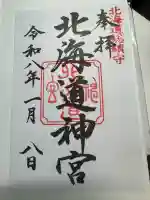 奉拝
北海道総鎮守
北海道神宮
令和八年一月八日